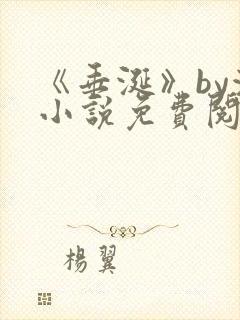 《垂涎》by
小說免費閱
楊翼